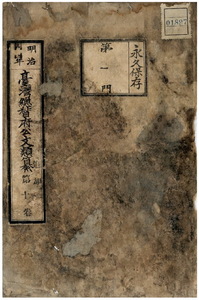 永久保存
第一門
明治
四年
臺灣總督府公文類纂
第十卷
01897